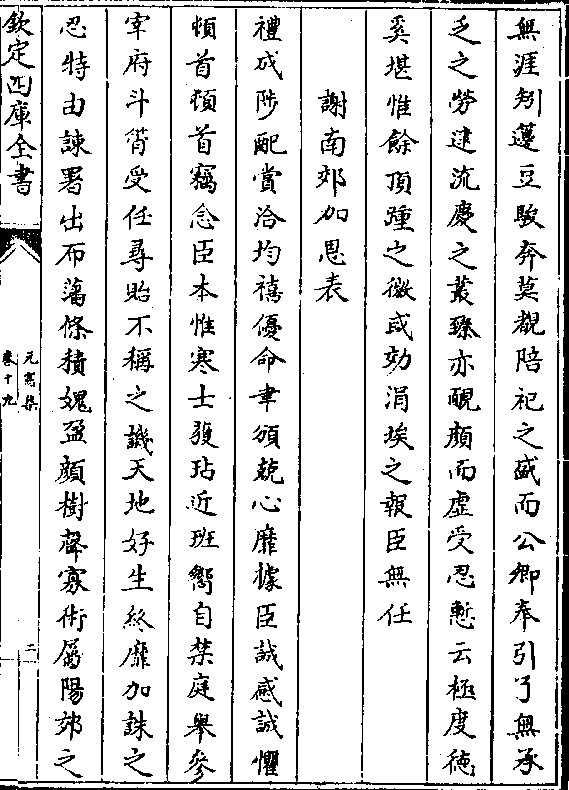 無涯矧籩豆駿奔莫覩陪祀之盛而公卿奉引了無承
乏之勞逮流慶之叢臻亦靦顔而虛受忍慙云極度徳
奚堪惟餘頂踵之微或効涓埃之報臣無任
謝南郊加恩表
禮成陟配賞洽均禧優命聿頒兢心靡據臣誠感誠懼
頓首頓首竊念臣本惟寒士猥玷近班嚮自禁庭舉參
宰府斗筲受任尋貽不稱之譏天地好生終靡加誅之
忍特由諫署出布藩條積媿盈顔樹聲寡術屬陽郊之
欽定四庫全書
元憲集
卷十九
二